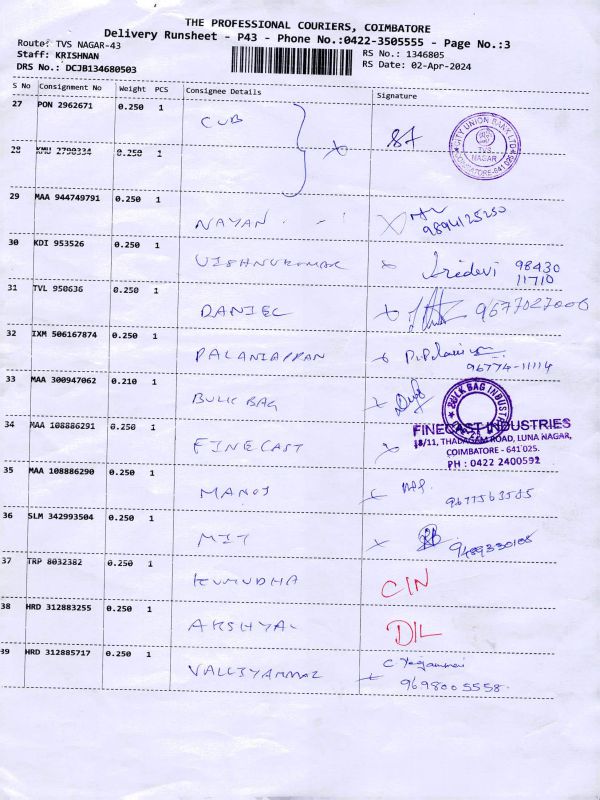 THE PROFESSIONAL COURIERS, COIMBATORE
Delivery Runsheet - P43 - Phone No.:0422-3505555 - Page No.:3
Route: TVS NAGAR-43
RS No.: 1346805
Staff: KRISHNAN
RS Date: 02-Apr-2024
DRS No.: DCJB134680503
S No Consignment No Weight PCS Consignee Details Signature
27 PON 2962671 0.250 1 CUB
CITY UNION BANK LTD
TVS NAGAR
COIMBATORE-641 025
28 KMU 2790334 0.250 1
29 MAA 944749791 0.250 1 NAYAN 9894125250
30 KDI 953526 0.250 1 VISHNUKUMAR Sridevi 98430
11710
31 TVL 950636 0.250 1 DANIEL 9677027006
32 IXM 506167874 0.250 1 PALANIAPPAN
96774-11114
33 MAA 300947062 0.210 1 BULK BAG
BULK BAG INDUSTR
34 MAA 108886291 0.250 1 FINECAST
FINECAST INDUSTRIES
18/11, THADAGAM ROAD, LUNA NAGAR,
COIMBATORE - 641 025.
PH : 0422 2400592
35 MAA 108886290 0.250 1 MANOJ
36 SLM 342993504 0.250 1 MIT
37 TRP 8032382 0.250 1 KUMUDHA CIN
38 HRD 312883255 0.250 1 AKSHYA DIL
39 HRD 312885717 0.250 1 VALLIYAMMAL
9698005558